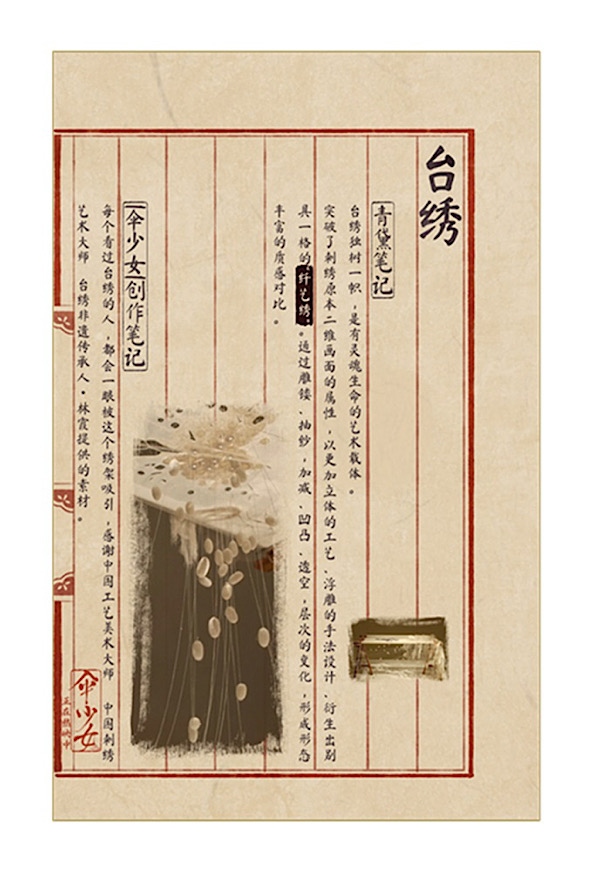 台绣
青黛笔记
台绣独树一帜，是有灵魂生命的艺术载体。
突破了刺绣原本二维画面的属性，以更加立体的工艺、浮雕的手法设计、衍生出别
具一格的“纤艺绣”。通过雕镂、抽纱，加减、凹凸、透空，层次的变化，形成形态
丰富的质感对比。
伞少女创作笔记
每个看过台绣的人，都会一眼被这个绣架吸引，感谢中国工艺美术大师 中国刺绣
艺术大师 台绣非遗传承人·林霞提供的素材。
伞少女
正在热映中